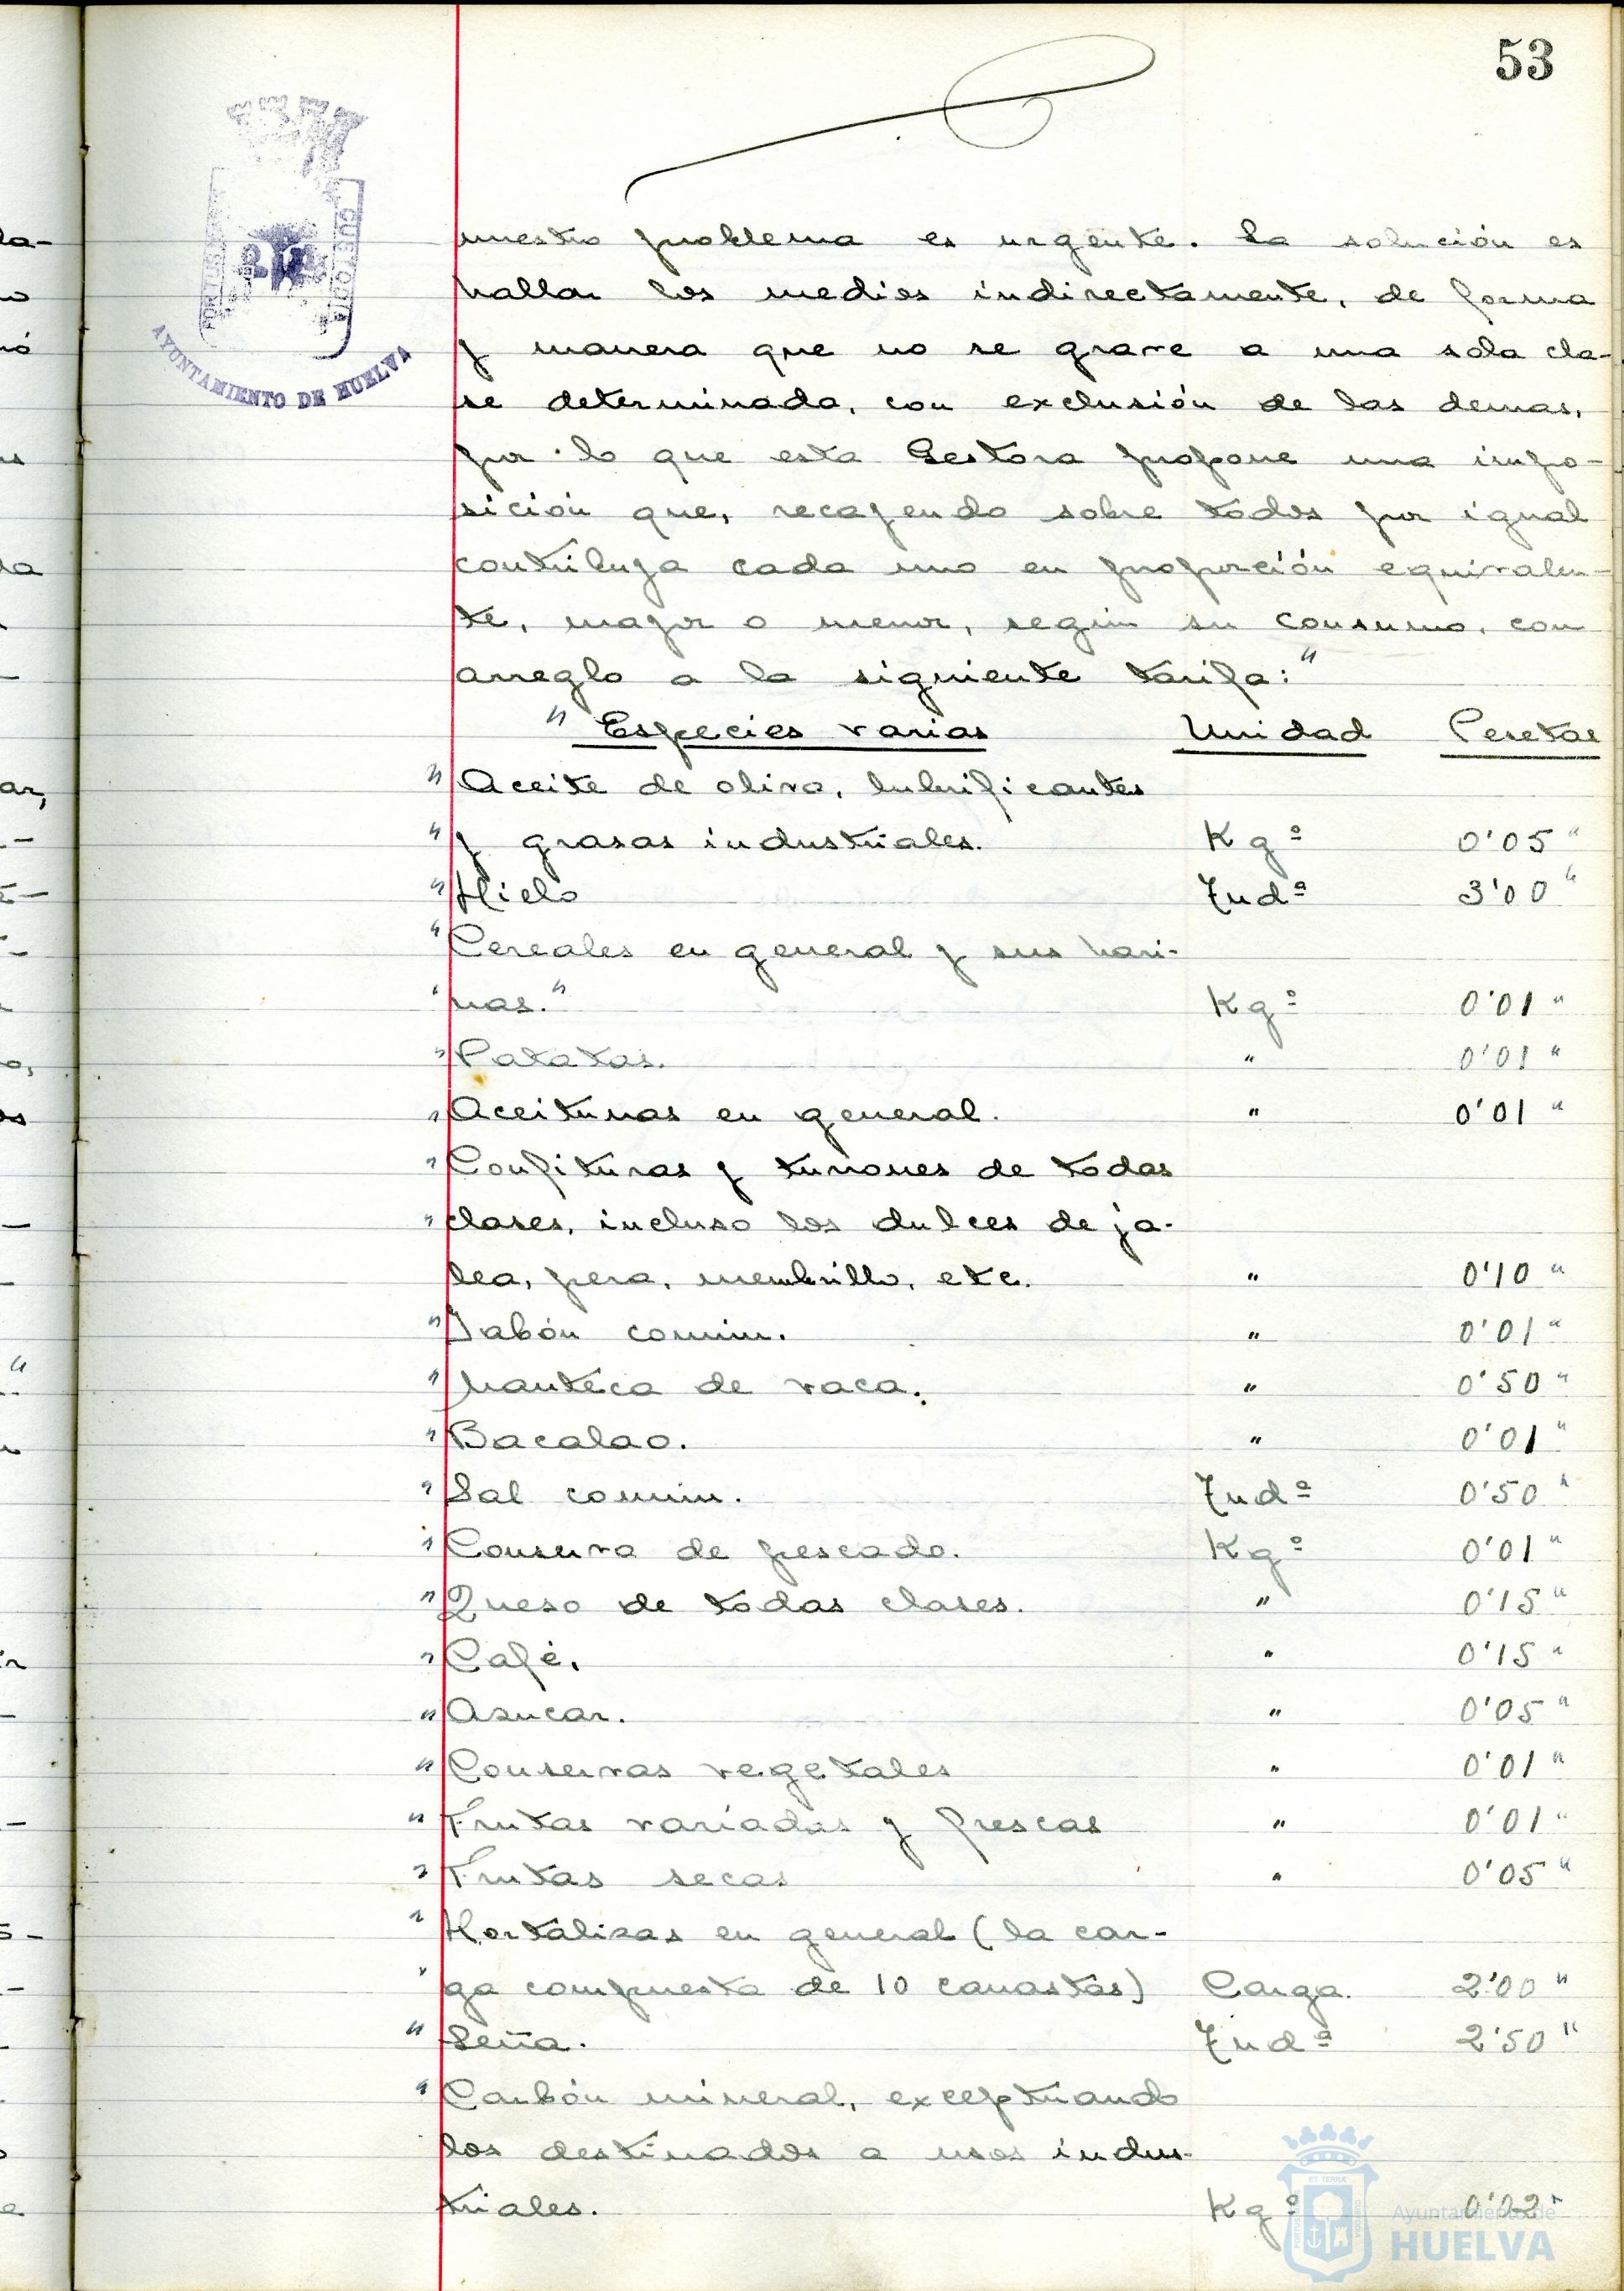 53
AYUNTAMIENTO DE HUELVA
nuestro problema es urgente. La solución es
hallar los medios indirectamente, de forma
y manera que no se grave a una sola cla-
se determinada, con exclusión de las demas,
por lo que esta Gestora propone una impo-
sición que, recayendo sobre todos por igual
contribuya cada uno en proporción equivalen-
te, mayor o menor, según su consumo, con
arreglo a la siguiente tarifa:"
" Especies varias Unidad Pesetas
" Aceite de oliva, lubrificantes
" y grasas industriales. Kgº 0'05 "
" Hielo Tndª 3'00 "
" Cereales en general y sus hari-
" nas." Kgº 0'01 "
" Patatas. " 0'01 "
" Aceitunas en general. " 0'01 "
" Confituras y turrones de todas
" clases, incluso los dulces de ja-
lea, pera, membrillo, etc. " 0'10 "
" Jabón común. " 0'01 "
" Manteca de vaca. " 0'50 "
" Bacalao. " 0'01 "
" Sal común. Tndª 0'50 "
" Conserva de pescado. Kgº 0'01 "
" Queso de todas clases. " 0'15 "
" Café. " 0'15 "
" Asucar. " 0'05 "
" Conservas vegetales " 0'01 "
" Frutas variadas y frescas " 0'01 "
" Frutas secas " 0'05 "
" Hortalisas en general (la car-
" ga compuesta de 10 canastas) Carga. 2'00 "
" Leña. Tndª 2'50 "
" Carbón mineral, exceptuando
los destinados a usos indus-
triales. Kgº 0'02 "
Ayuntamiento de
HUELVA